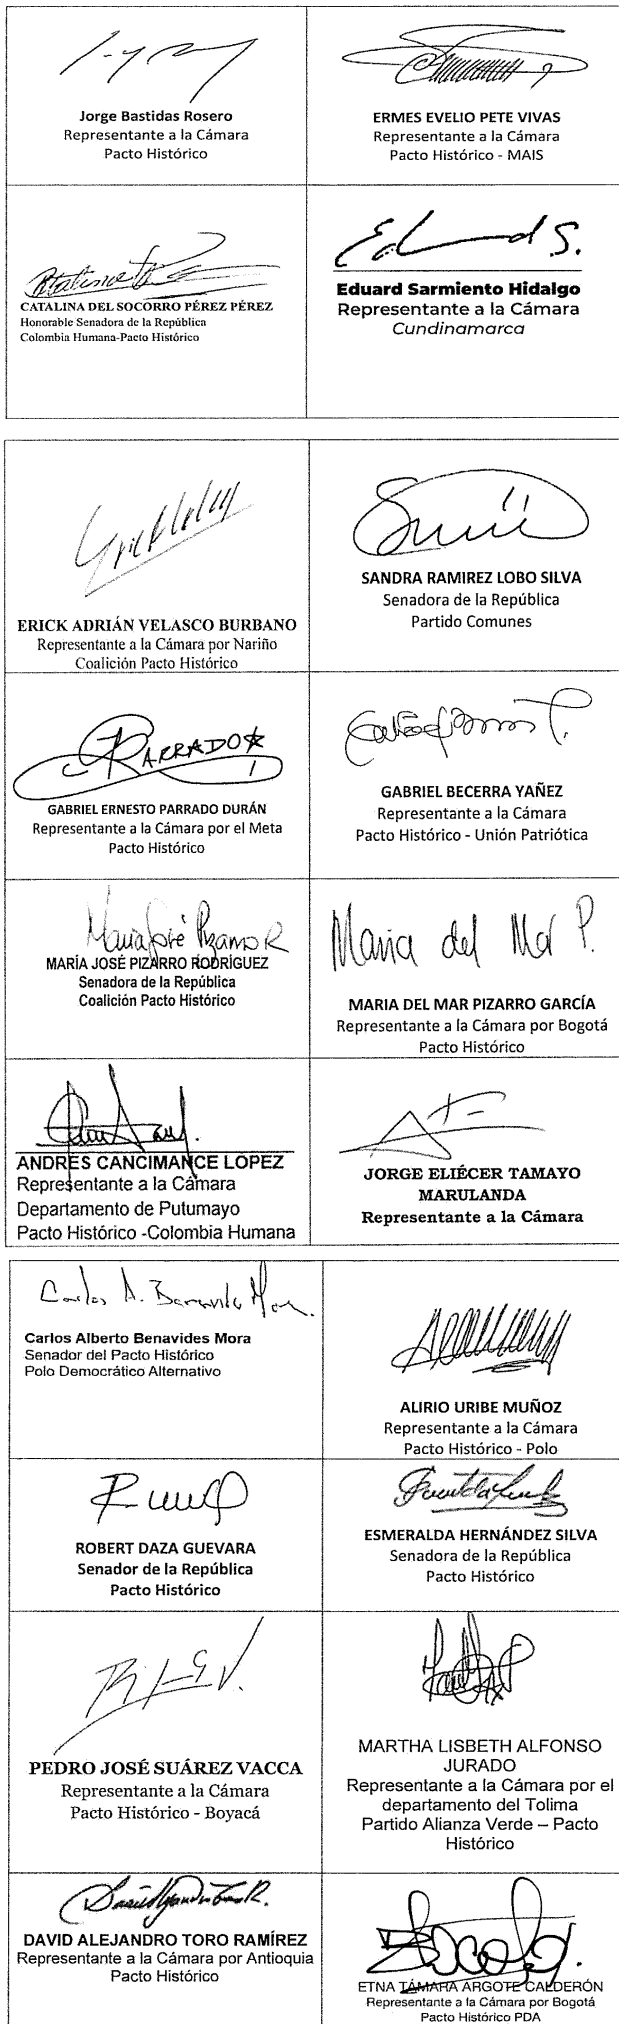 Jorge Bastidas Rosero
Representante a la Cámara
Pacto Histórico
ERMES EVELIO PETE VIVAS
Representante a la Cámara
Pacto Histórico - MAIS
CATALINA DEL SOCORRO PÉREZ PÉREZ
Honorable Senadora de la República
Colombia Humana-Pacto Histórico
Eduard Sarmiento Hidalgo
Representante a la Cámara
Cundinamarca
ERICK ADRIÁN VELASCO BURBANO
Representante a la Cámara por Nariño
Coalición Pacto Histórico
SANDRA RAMIREZ LOBO SILVA
Senadora de la República
Partido Comunes
PARRADO
GABRIEL ERNESTO PARRADO DURÁN
Representante a la Cámara por el Meta
Pacto Histórico
GABRIEL BECERRA YAÑEZ
Representante a la Cámara
Pacto Histórico - Unión Patriótica
María José Pizarro R
MARÍA JOSÉ PIZARRO RODRÍGUEZ
Senadora de la República
Coalición Pacto Histórico
Maria del Mar P.
MARIA DEL MAR PIZARRO GARCÍA
Representante a la Cámara por Bogotá
Pacto Histórico
ANDRES CANCIMANCE LOPEZ
Representante a la Cámara
Departamento de Putumayo
Pacto Histórico -Colombia Humana
JORGE ELIÉCER TAMAYO
MARULANDA
Representante a la Cámara
Carlos A. Benavides Mora.
Carlos Alberto Benavides Mora
Senador del Pacto Histórico
Polo Democrático Alternativo
ALIRIO URIBE MUÑOZ
Representante a la Cámara
Pacto Histórico - Polo
ROBERT DAZA GUEVARA
Senador de la República
Pacto Histórico
ESMERALDA HERNÁNDEZ SILVA
Senadora de la República
Pacto Histórico
PEDRO JOSÉ SUÁREZ VACCA
Representante a la Cámara
Pacto Histórico - Boyacá
MARTHA LISBETH ALFONSO
JURADO
Representante a la Cámara por el
departamento del Tolima
Partido Alianza Verde – Pacto
Histórico
DAVID ALEJANDRO TORO RAMÍREZ
Representante a la Cámara por Antioquia
Pacto Histórico
ETNA TÁMARA ARGOTE CALDERÓN
Representante a la Cámara por Bogotá
Pacto Histórico PDA